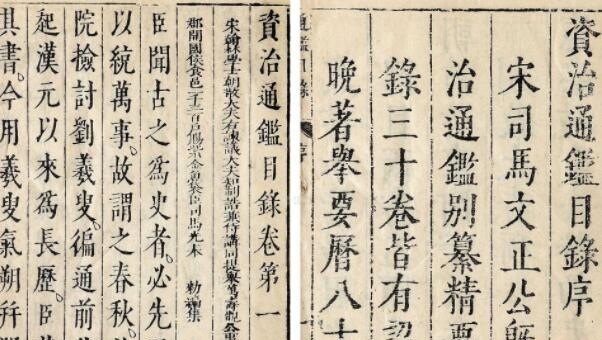 資治通鑑目錄序
宋司馬文正公旣
治通鑑別纂精要
錄三十卷皆有
晚著舉要曆八十
通鑑目錄 序
資治通鑑目錄卷第一
宋翰林學士朝散大夫右諫議大夫知制誥兼侍講同提舉萬壽觀公事
郡開國侯食邑一千三百戶賜紫金魚袋臣司馬光奉 勅編集
臣聞古之爲史者。必先
以統萬事。故謂之春秋。
院檢討劉羲叟。徧通前
起漢元以來爲長歷。臣
其書。今用羲叟氣朔幷